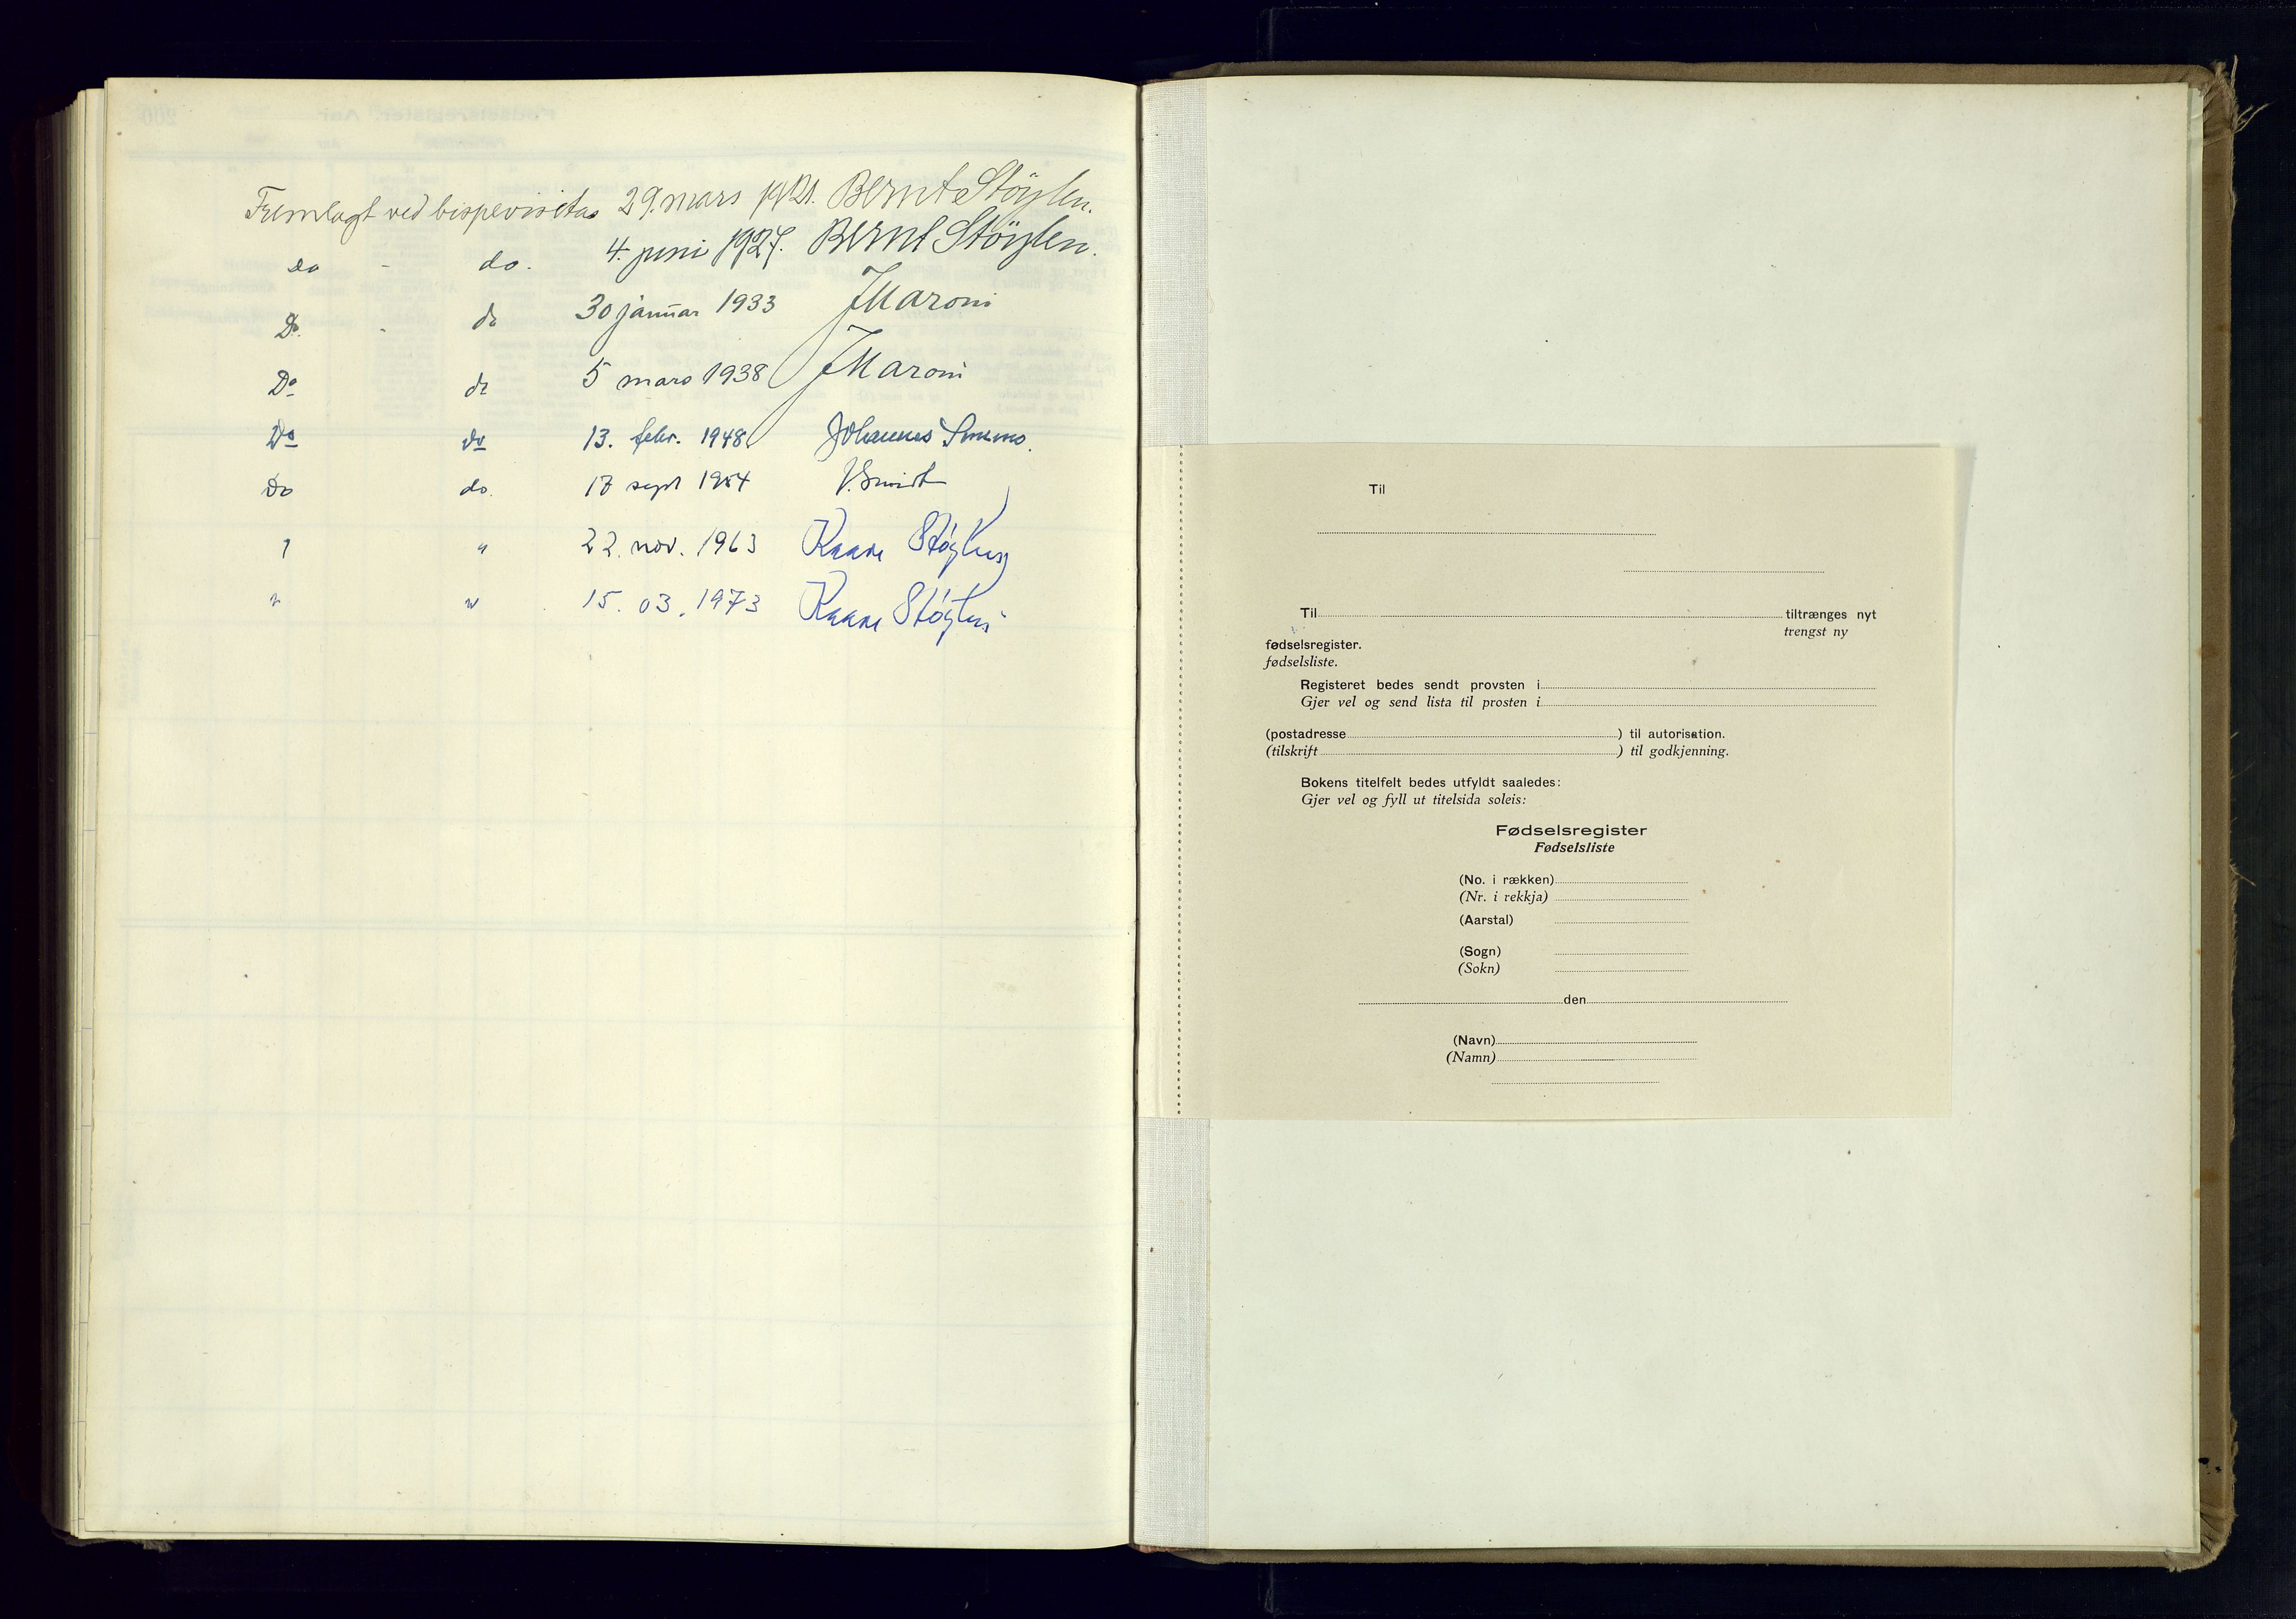 Fremlagt ved bispevisitas 29. mars 1921. Bernt Støylen.
Do - do. 4. juni 1927. Bernt Støylen.
Do. - do 30 januar 1933 JMaroni
Do do 5 mars 1938 JMaroni
Do do 13. febr. 1948 Johannes Smemo.
Do do. 17 sept 1954 J. Smidt
" " 22. nov. 1963 Kaare Støylen
" " 15. 03. 1973 Kaare Støylen
Til
Til tiltrænges nyt
trengst ny
fødselsregister.
fødselsliste.
Registeret bedes sendt provsten i
Gjer vel og send lista til prosten i
(postadresse ) til autorisation.
(tilskrift ) til godkjenning.
Bokens titelfelt bedes utfyldt saaledes:
Gjer vel og fyll ut titelsida soleis:
Fødselsregister
Fødselsliste
(No. i rækken)
(Nr. i rekkja)
(Aarstal)
(Sogn)
(Sokn)
den
(Navn)
(Namn)